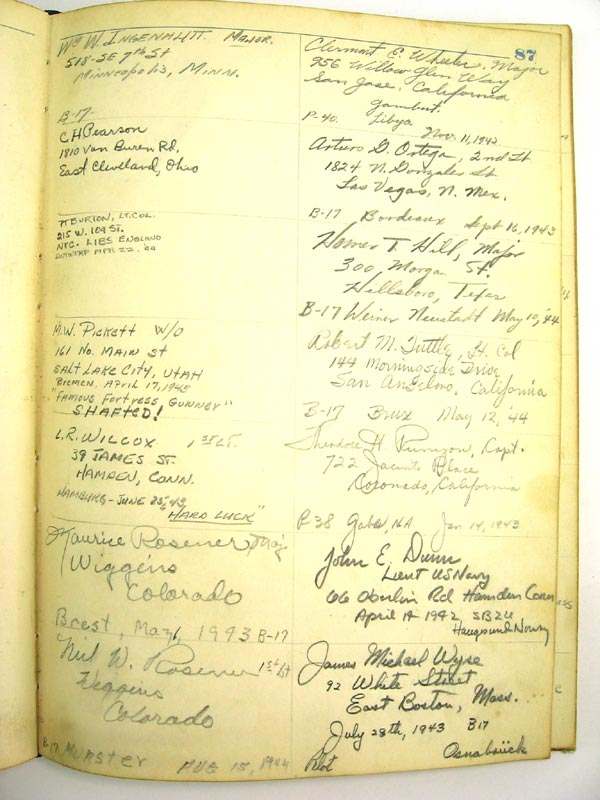 87
Wm W. Ingenhutt Major.
518-SE 7th St
Minneapolis, Minn.
B-17
C H Pearson
1810 Van Buren Rd,
East Cleveland, Ohio
BURTON, LT. COL.
215 W. 109 ST.
NYC. LIES ENGLAND
APR 22. '44
M.W. Pickett W/O
161 No. Main St
Salt Lake City, Utah
Bremen, April 17, 1943
"Famous Fortress Gunner"
SHAFTED!
L.R. Wilcox 1st Lt.
39 James St.
Hamden, Conn.
Hamburg - June 25, 43
"Hard Luck"
Maurice Rosener, Maj
Wiggins
Colorado
Brest, May, 1943 B-17
W. Rosener 1st Lt
Wiggins
Colorado
B17 Munster Aug 15, 1944
Clermont E. Wheeler, Major
956 Willow Glen Way
San Jose, California
Gambut
P-40 Libya
Nov. 11, 1942
Arturo G. Ortega, 2nd Lt
1824 N. Gonzales St.
Las Vegas, N. Mex.
B-17 Bordeaux Sept 16, 1943
Homer T. Hill, Major
300 Morgan St.
Hillsboro, Texas
B-17 Weiner Neustadt May 10, '44
Robert M. Tuttle, Lt. Col
144 Morningside Drive
San Anselmo, California
B-17 Brux May 12, '44
Theodore H Runyon, Capt.
722 Jacinto Place
Coronado, California
P-38 Gabes, NA Jan 14, 1943
John E. Dunn
Lieut US Navy
66 Oberlin Rd Hamden Conn
April 14 1942 SB2U
Haugesund Norway
James Michael Wyse
92 White Street
East Boston, Mass.
July 28th, 1943 B17
Pilot Osnabrück